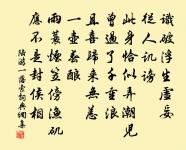 識破浮生虛妄
從人譏謗
此身恰似弄潮兒
曾過了千重浪
且喜歸來無恙
一壺春釀
雨蓑煙笠傍漁磯
應不是封侯相
陸游一落索詞